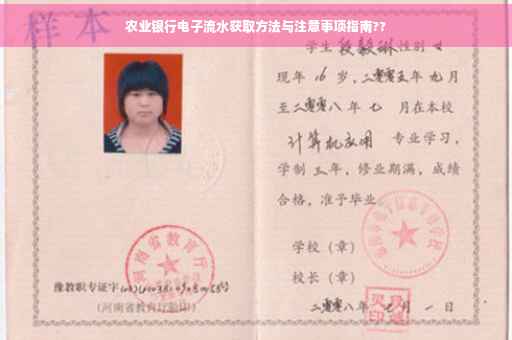 农业银行电子流水获取方法与注意事项指南??
样本
学生段毅琳性别女
现年16岁,二零零五年九月
至二零零八年七月在本校
计算机应用 专业学习,
学制三年,修业期满,成绩
合格,准予毕业。
学校(章)
校长(章)
二零零八年七月一日
河南省教育厅
豫教职专证字
(河南省教育厅验印)